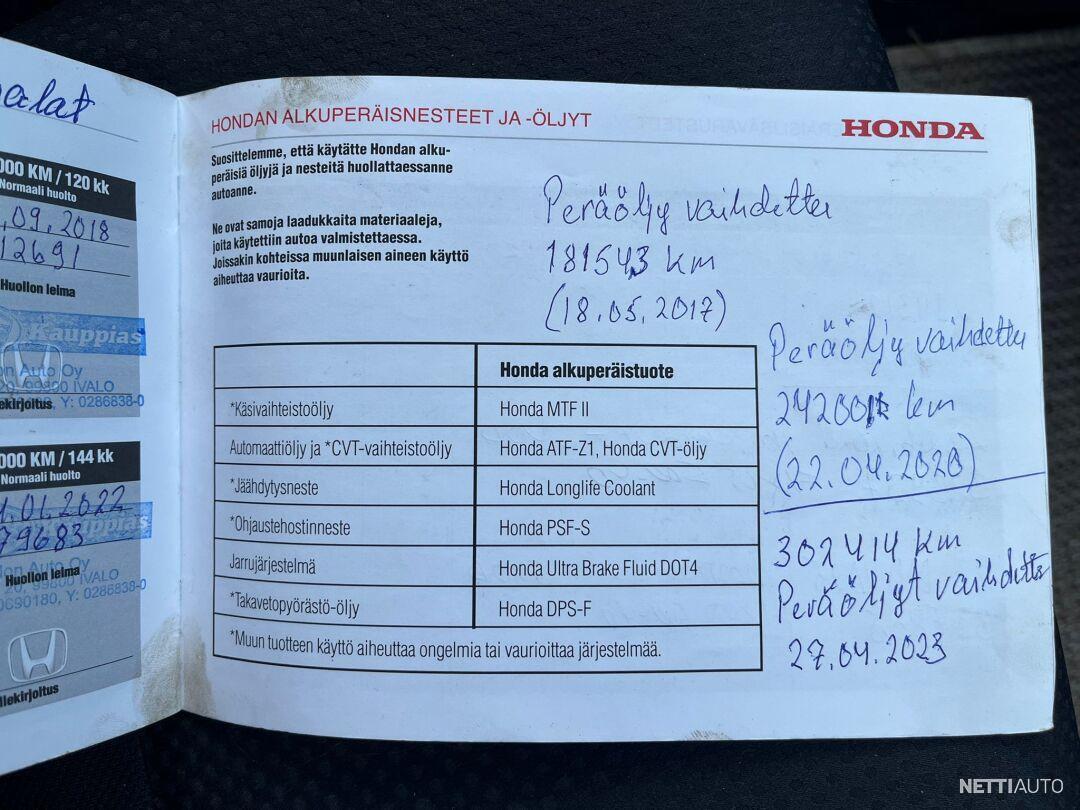 000 KM / 120 kk
Normaali huolto
.09.2018
12691
Huollon leima
Kauppias
on Auto Oy
20, 99800 IVALO
Y: 0286838-0
ekirjoitus
000 KM / 144 kk
Normaali huolto
.01.2022
79683
Kauppias
on Auto Oy
Huollon leima
IVALO
0690180, Y: 0286838-0
llekirjoitus
HONDAN ALKUPERÄISNESTEET JA -ÖLJYT
HONDA
Suosittelemme, että käytätte Hondan alku-
peräisiä öljyjä ja nesteitä huollattaessanne
autoanne.
Ne ovat samoja laadukkaita materiaaleja,
joita käytettiin autoa valmistettaessa.
Joissakin kohteissa muunlaisen aineen käyttö
aiheuttaa vaurioita.
Peräöljy vaihdettu
181543 km
(18.05.2017)
Honda alkuperäistuote
*Käsivaihteistoöljy Honda MTF II
Automaattiöljy ja *CVT-vaihteistoöljy Honda ATF-Z1, Honda CVT-öljy
*Jäähdytysneste Honda Longlife Coolant
*Ohjaustehostinneste Honda PSF-S
Jarrujärjestelmä Honda Ultra Brake Fluid DOT4
*Takavetopyörästö-öljy Honda DPS-F
*Muun tuotteen käyttö aiheuttaa ongelmia tai vaurioittaa järjestelmää.
Peräöljy vaihdettu
km
(22.04.2020)
302414 km
Peräöljyt vaihdettu
27.04.2023
NETTIAUTO